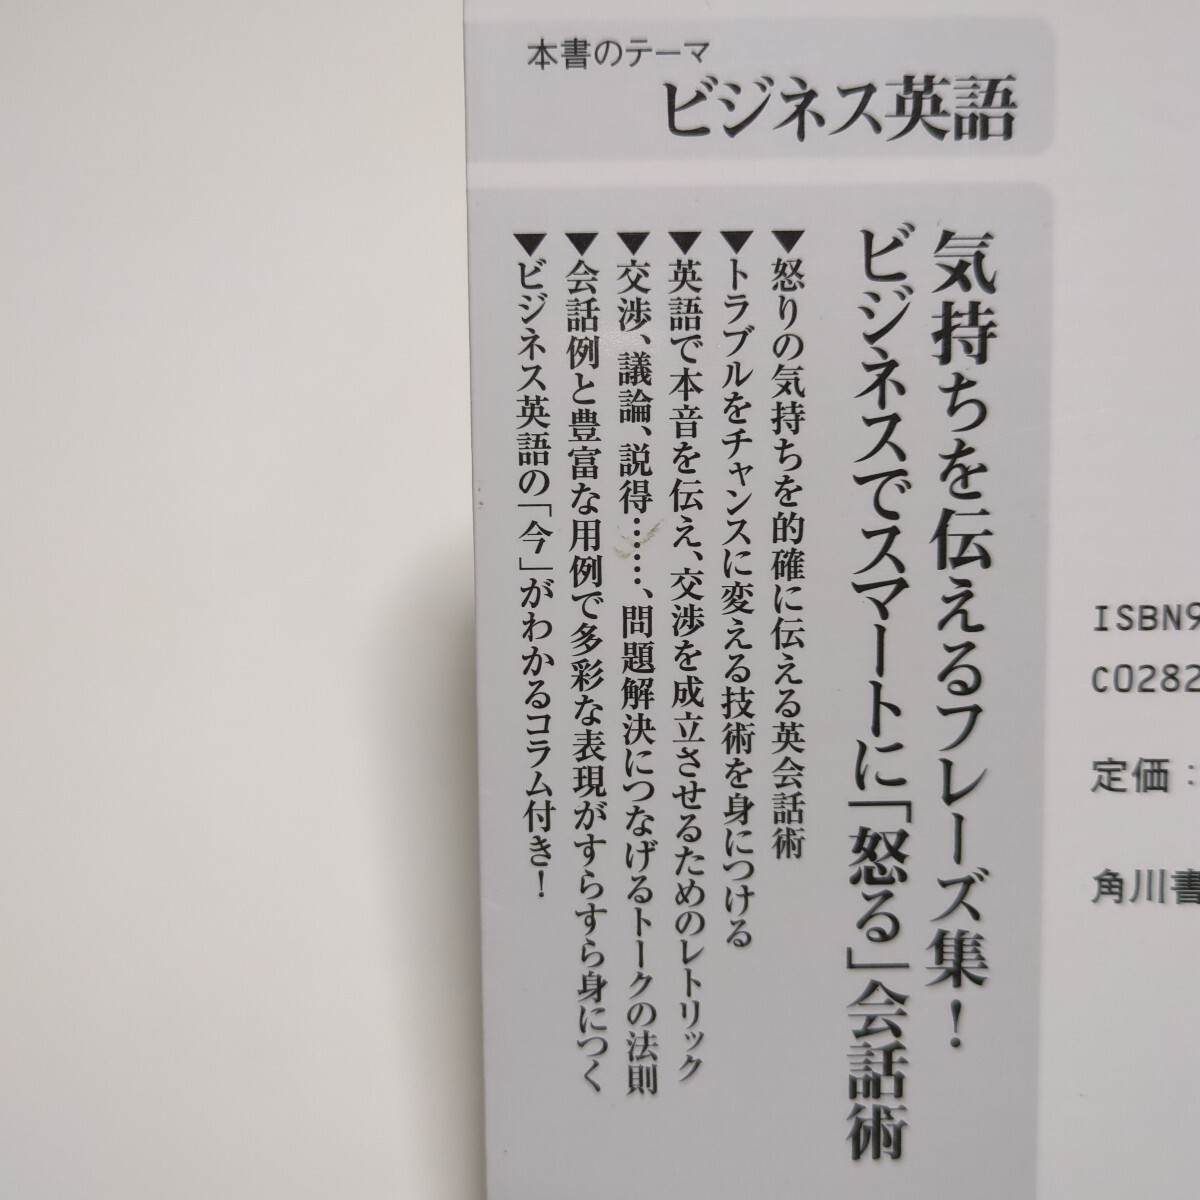 本書のテーマ
ビジネス英語
気持ちを伝えるフレーズ集！
ビジネスでスマートに「怒る」会話術
▼怒りの気持ちを的確に伝える英会話術
▼トラブルをチャンスに変える技術を身につける
▼英語で本音を伝え、交渉を成立させるためのレトリック
▼交渉、議論、説得……、問題解決につなげるトークの法則
▼会話例と豊富な用例で多彩な表現がすらすら身につく
▼ビジネス英語の「今」がわかるコラム付き！
ISBN9
C0282
定価：
角川書